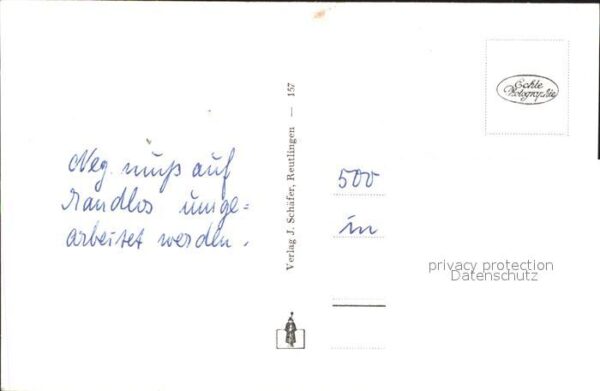 Neg. muß auf
Randlos umge=
arbeitet werden.
Verlag J. Schäfer, Reutlingen — 157
Echte
Photographie
500
in
privacy protection
Datenschutz